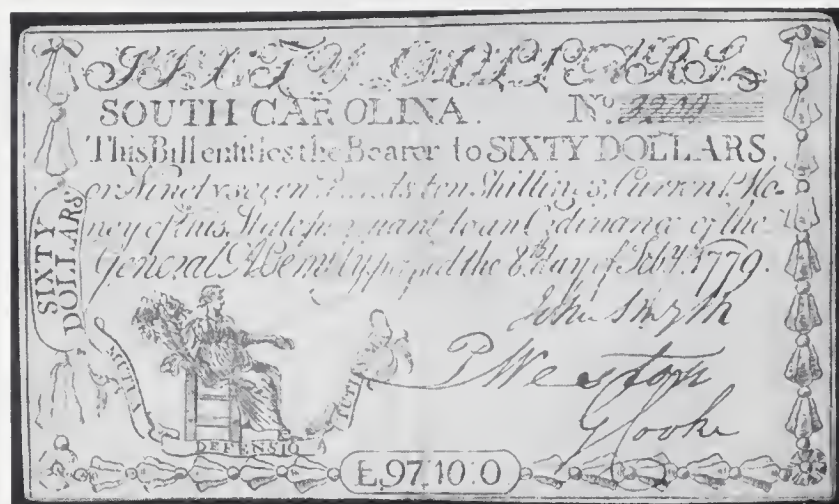 SIXTY DOLLARS
SOUTH CAROLINA. No.
This Bill entitles the Bearer to SIXTY DOLLARS.
or Ninety seven Pounds ten Shillings, Current Mo-
ney of this State pursuant to an Ordinance of the
General Assembly passed the 8th day of Feby. 1779.
John Smyth
P Weston
G Cooke
SIXTY
DOLLARS
MUTUA
DEFENSIO
£,97,10:0